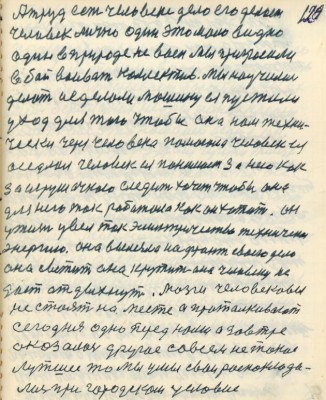 128
А труд сам человека дело его делает
человек лично один это мало видно
один в природе не воен мы приросли
в бой воевать коллектив. Мы научили
делать и сделали машину и пустили
в ход для того чтобы она нам техни-
чески через человека помогла человек ея
сделал человек ея понимает за нею как
за игрушечкою следит хочит чтобы она
для него так работала как он хотел. он
ужили увел ток электричество техническа
энергию. она вышла на фронт свое дело
она светит она крутит она человеку не
даёт отдыхнуть. Мозги человековы
не стоят на месте а проталкивают
сегодня одно перед нами а завтра
оказалось другое совсем не такое
лутшее то мы умы свои раскомода-
лис при городском условие